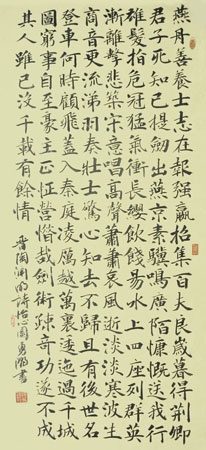 燕丹善養士志在報强嬴招集百夫良歲暮得荆卿
君子死知己提劍出燕京素驥鳴廣陌慷慨送我行
雄髮指危冠猛氣衝長纓飲餞易水上四座列群英
漸離擊悲築宋意唱高聲蕭蕭哀風逝淡淡寒波生
商音更流涕羽奏壮士驚心知去不歸且有後世名
登車何時顧飛蓋入秦庭凌厲越萬裏逶迤過千城
圖窮事自至豪主正怔營惜哉劍術疎奇功遂不成
其人雖已没千載有餘情
晋陶渊明詩